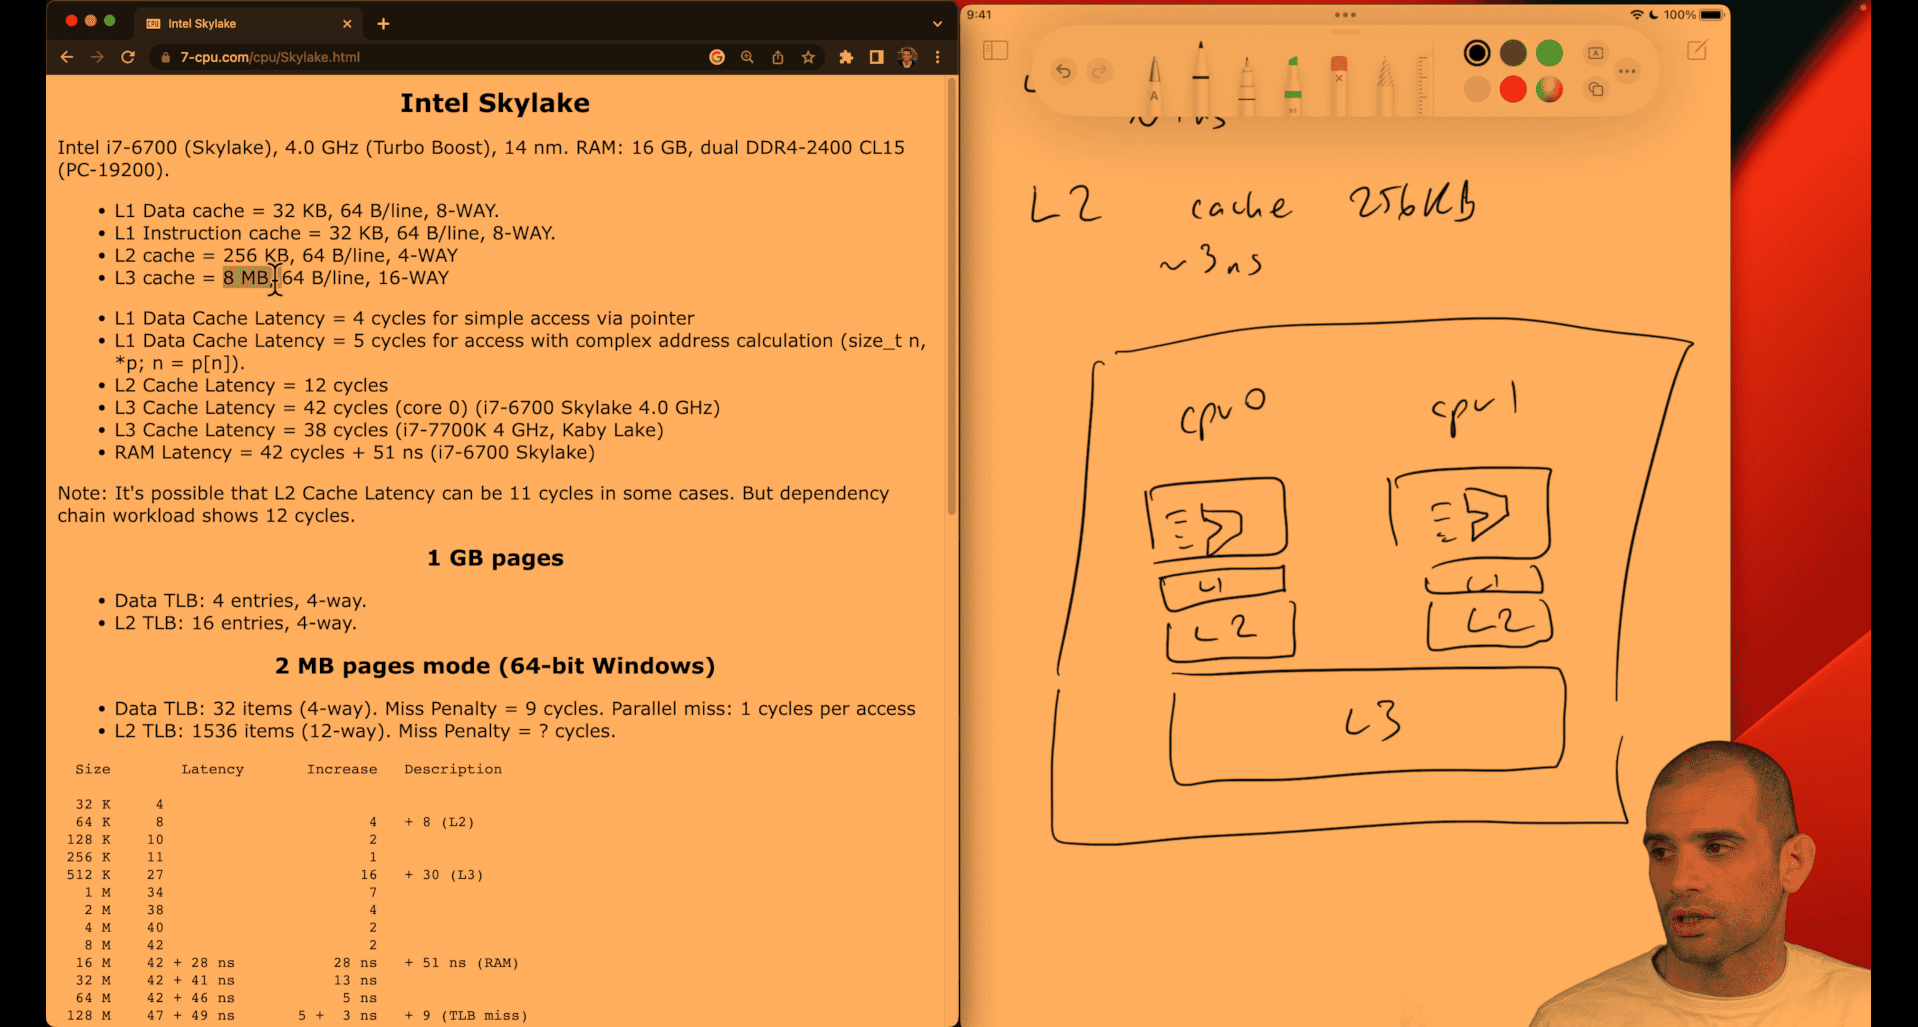 Intel Skylake
7-cpu.com/cpu/Skylake.html
Intel Skylake
Intel i7-6700 (Skylake), 4.0 GHz (Turbo Boost), 14 nm. RAM: 16 GB, dual DDR4-2400 CL15
(PC-19200).
• L1 Data cache = 32 KB, 64 B/line, 8-WAY.
• L1 Instruction cache = 32 KB, 64 B/line, 8-WAY.
• L2 cache = 256 KB, 64 B/line, 4-WAY
• L3 cache = 8 MB, 64 B/line, 16-WAY
• L1 Data Cache Latency = 4 cycles for simple access via pointer
• L1 Data Cache Latency = 5 cycles for access with complex address calculation (size_t n,
*p; n = p[n]).
• L2 Cache Latency = 12 cycles
• L3 Cache Latency = 42 cycles (core 0) (i7-6700 Skylake 4.0 GHz)
• L3 Cache Latency = 38 cycles (i7-7700K 4 GHz, Kaby Lake)
• RAM Latency = 42 cycles + 51 ns (i7-6700 Skylake)
Note: It's possible that L2 Cache Latency can be 11 cycles in some cases. But dependency
chain workload shows 12 cycles.
1 GB pages
• Data TLB: 4 entries, 4-way.
• L2 TLB: 16 entries, 4-way.
2 MB pages mode (64-bit Windows)
• Data TLB: 32 items (4-way). Miss Penalty = 9 cycles. Parallel miss: 1 cycles per access
• L2 TLB: 1536 items (12-way). Miss Penalty = ? cycles.
Size Latency Increase Description
32 K 4
64 K 8 4 + 8 (L2)
128 K 10 2
256 K 11 1
512 K 27 16 + 30 (L3)
1 M 34 7
2 M 38 4
4 M 40 2
8 M 42 2
16 M 42 + 28 ns 28 ns + 51 ns (RAM)
32 M 42 + 41 ns 13 ns
64 M 42 + 46 ns 5 ns
128 M 47 + 49 ns 5 + 3 ns + 9 (TLB miss)
9:41
100%
A
L2 cache 256KB
~3ns
cpu0 cpu1
L1 L1
L2 L2
L3